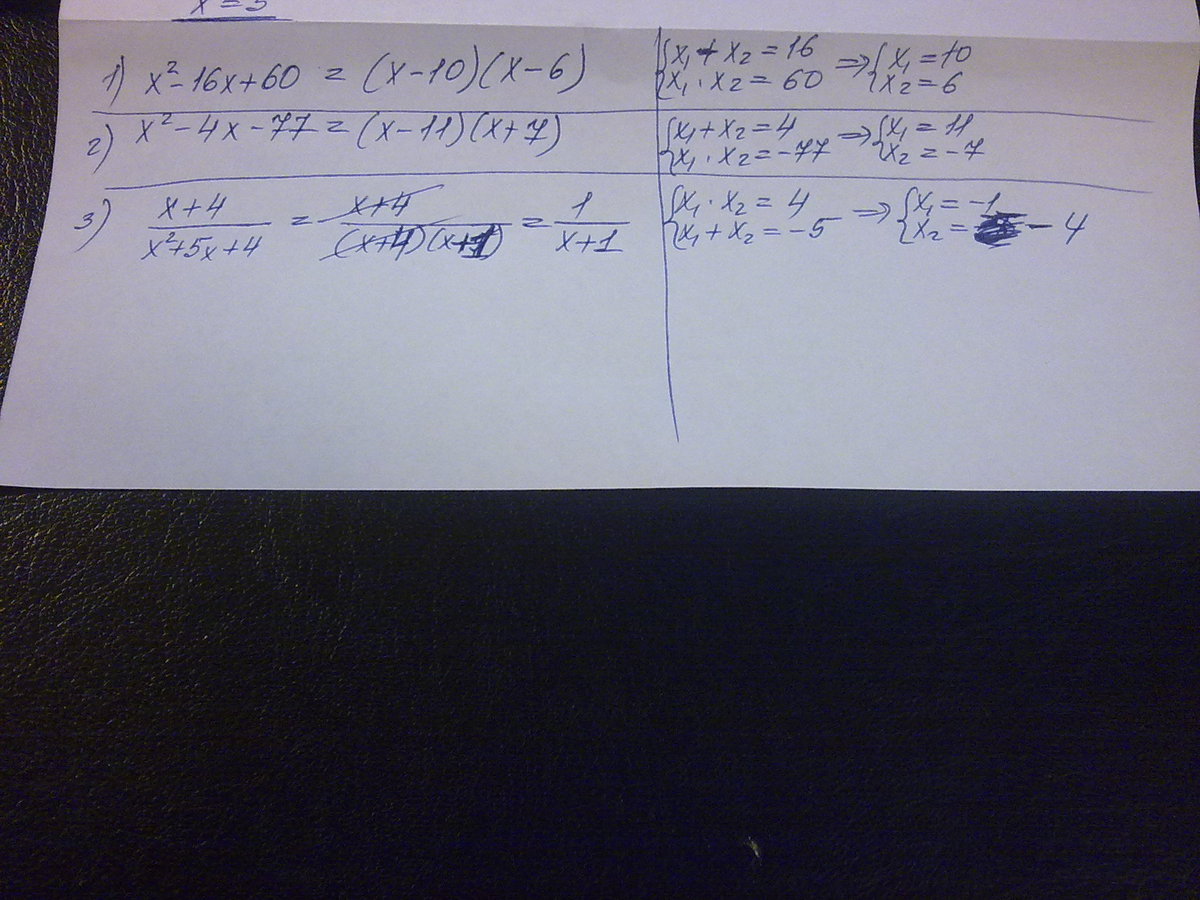 x = 5
1) x² - 16x + 60 = (x - 10)(x - 6) { x₁ + x₂ = 16 x₁ · x₂ = 60 ⇒ { x₁ = 10 x₂ = 6
2) x² - 4x - 77 = (x - 11)(x + 7) { x₁ + x₂ = 4 x₁ · x₂ = -77 ⇒ { x₁ = 11 x₂ = -7
3) (x + 4)/(x² + 5x + 4) = (x + 4)/((x + 4)(x + 1)) = 1/(x + 1) { x₁ · x₂ = 4 x₁ + x₂ = -5 ⇒ { x₁ = -1 x₂ = - 4